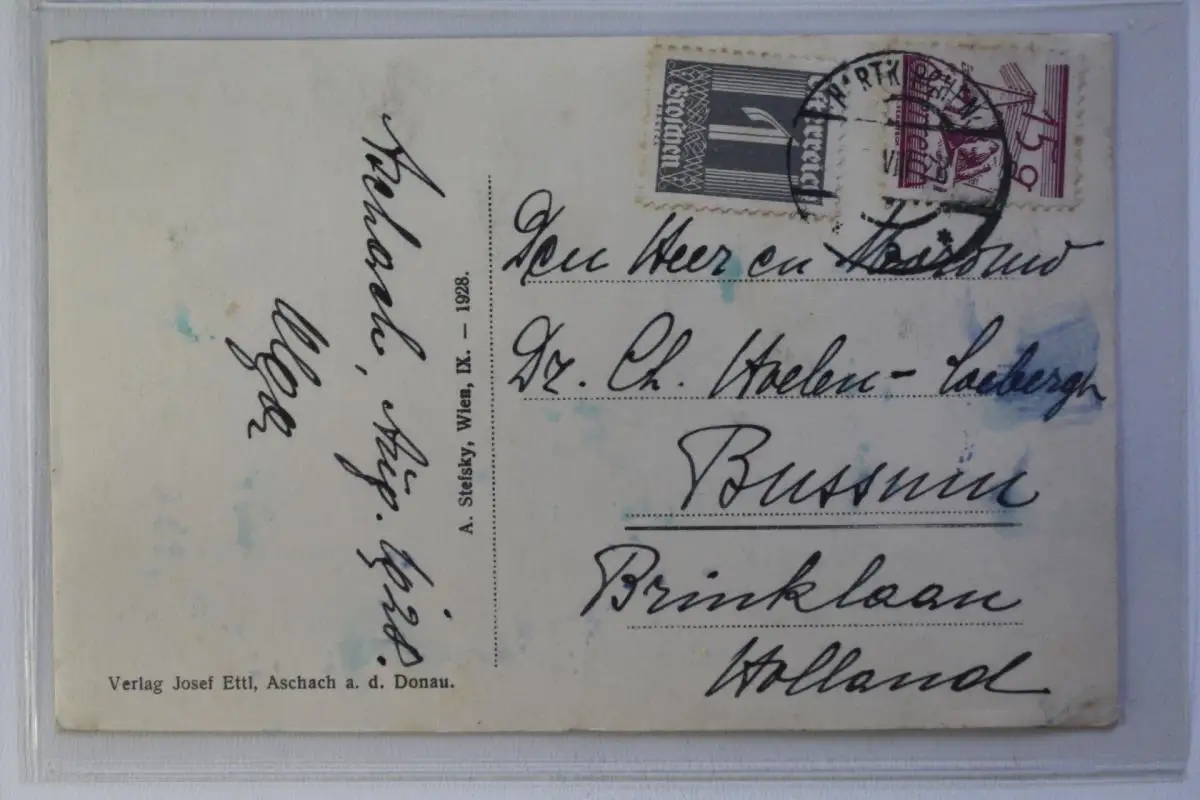 Österreich
1
Groschen
15 g
HARTKIRCHEN
Aschach, Aug. 1928.
Olga
A. Stefsky, Wien, IX. — 1928.
Den Heer en
Dr. Ch. Hoelen-
Bussum
Brinklaan
Holland
Verlag Josef Ettl, Aschach a. d. Donau.